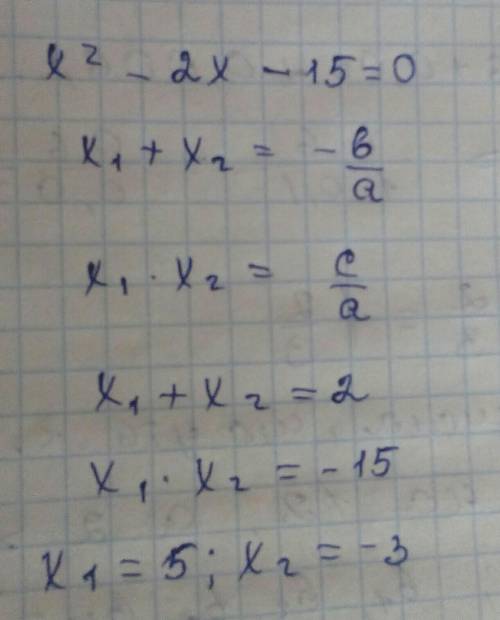 x² - 2x - 15 = 0
x₁ + x₂ = - в/a
x₁ · x₂ = c/a
x₁ + x₂ = 2
x₁ · x₂ = -15
x₁ = 5; x₂ = -3